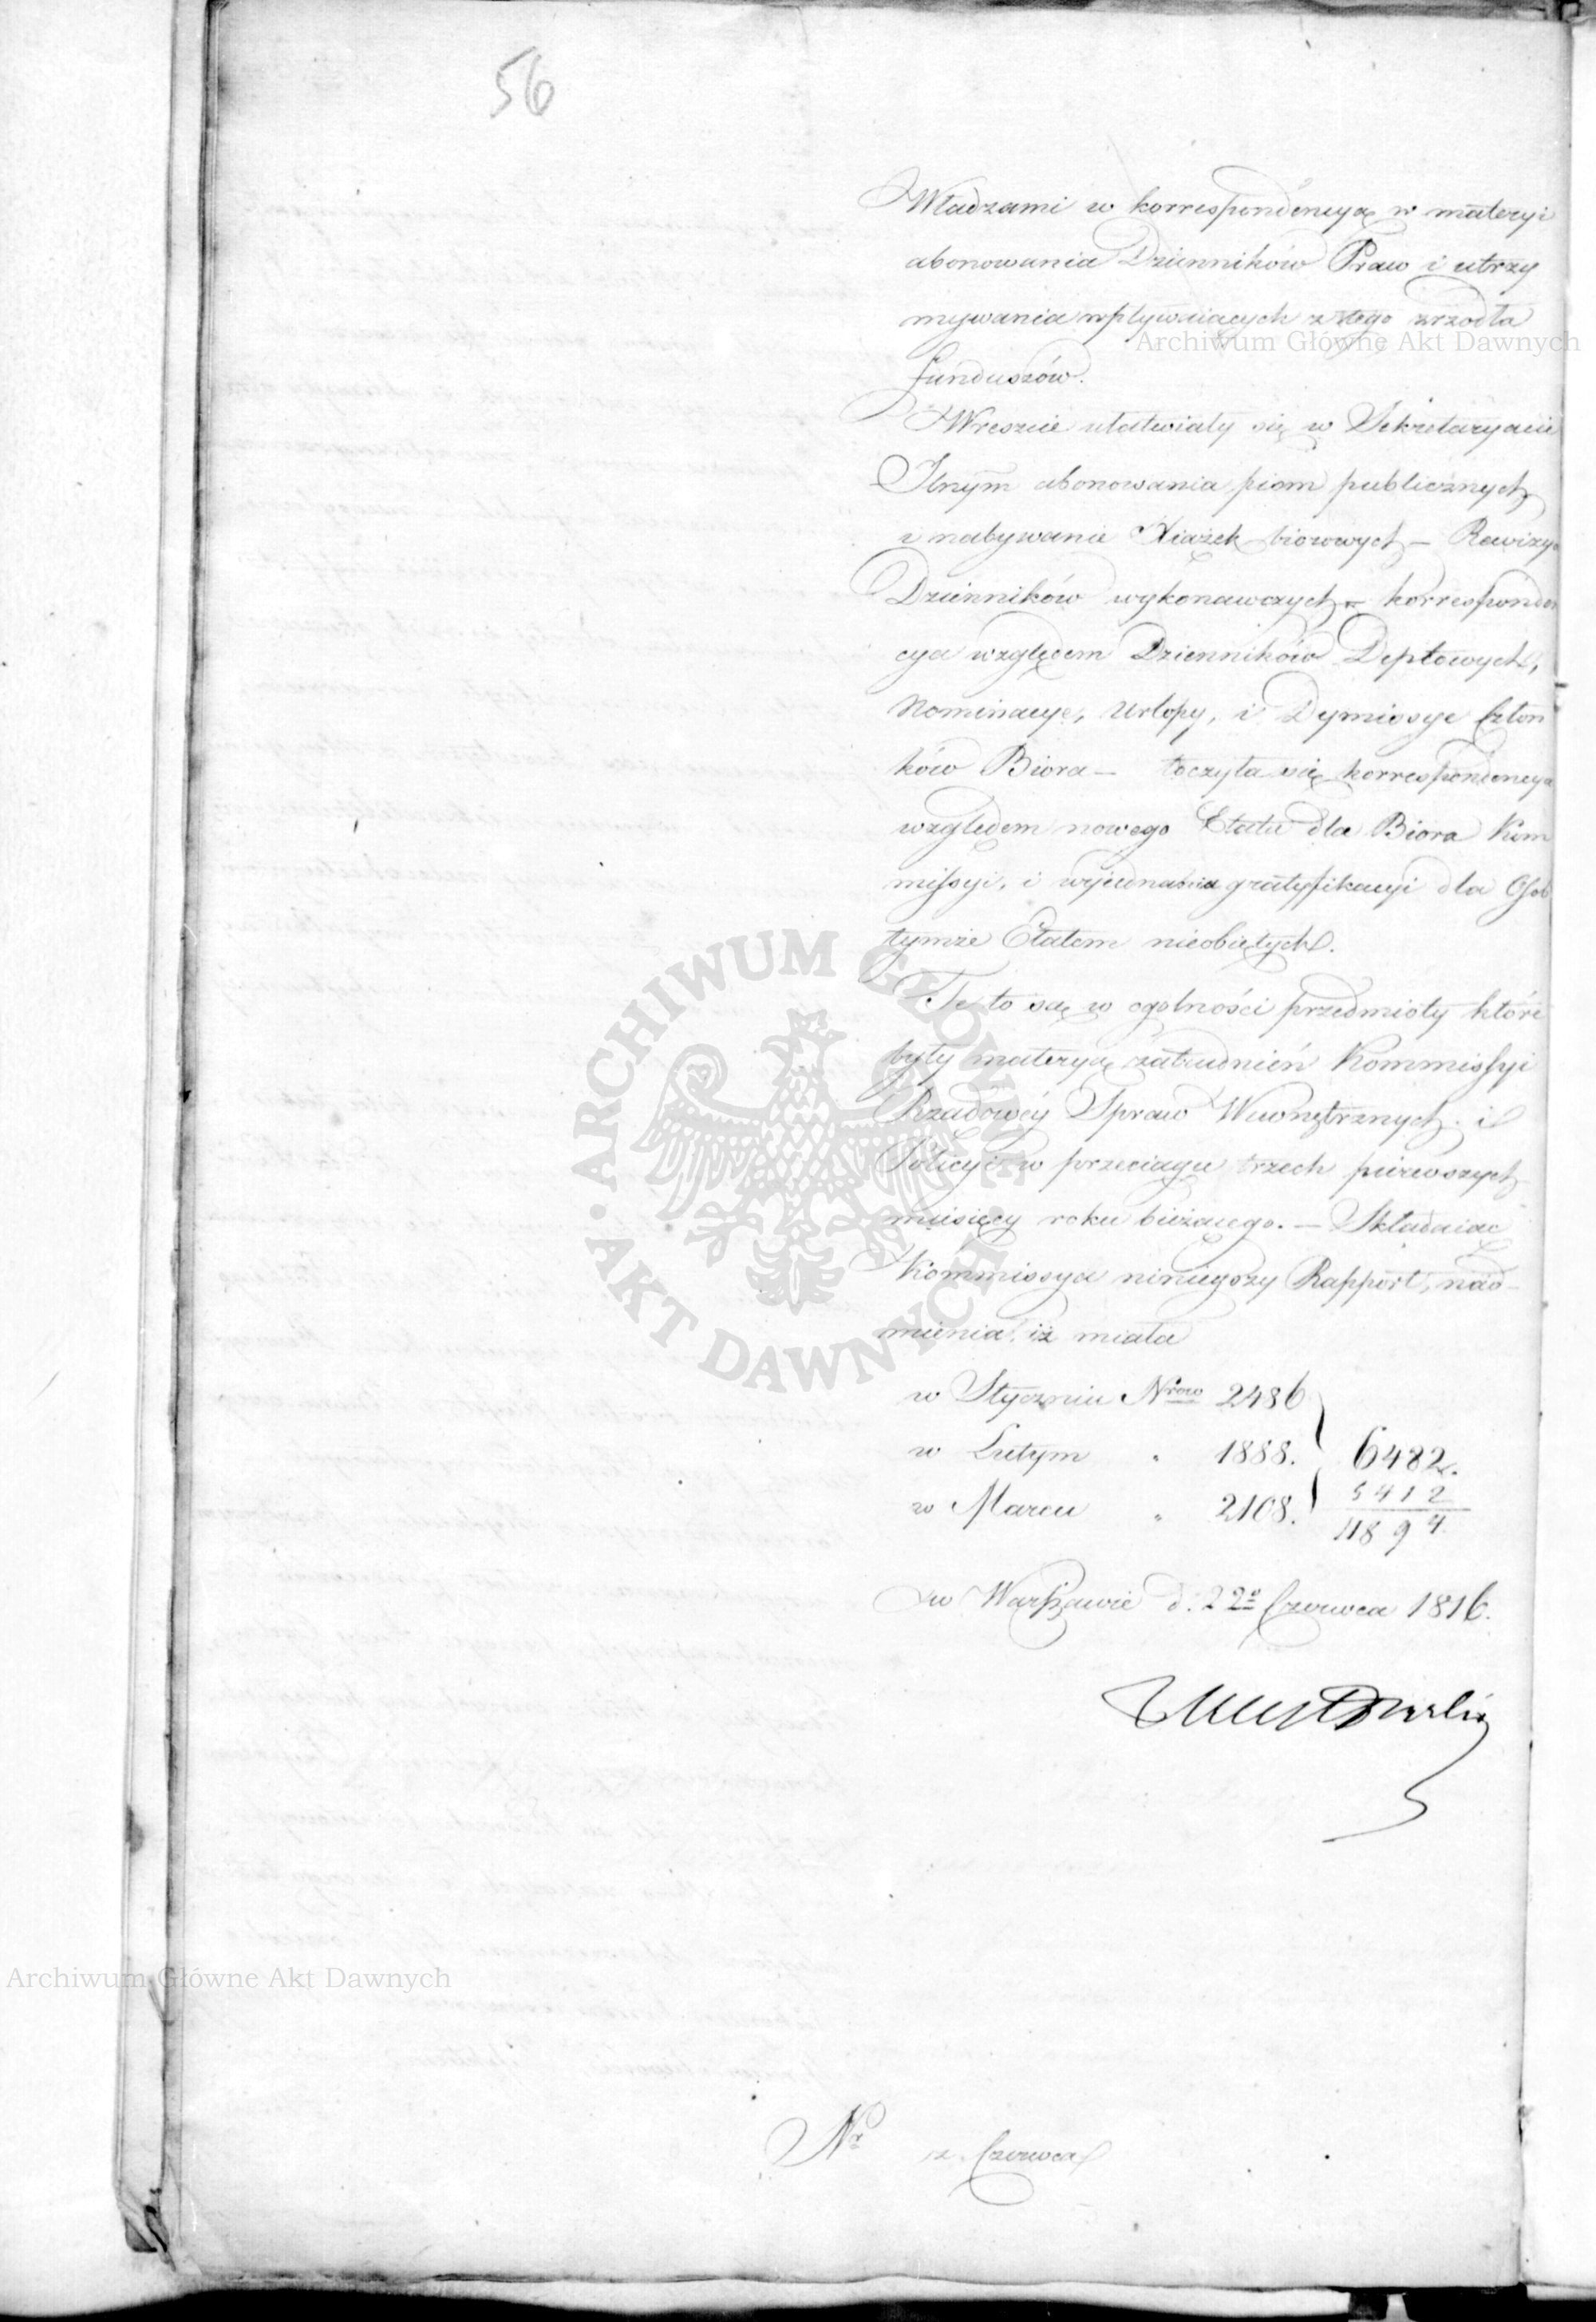 56
Władzami w korrespondencyą w materyi
abonowania Dzienników Praw i utrzy
mywania wpływaiących z tego zrzodła
funduszów.
Wreszcie ułatwiały się w Sekretaryacie
Jlnym abonowania pism publicznych
i nabywanie Xiążek biorowych – Rewizya
Dzienników wykonawczych – korresponden
cya względem Dzienników Deptowych,
Nominacye, Urlopy, i Dymissye Człon
ków Biora – toczyła się korrespondencya
względem nowego Etatu dla Biora Kom
missyi, i wyiednania gratyfikacyi dla Osob
tymże Etatem nieobiętych.
Te to są w ogolności przedmioty które
były materyą zatrudnień Kommissyi
Rządowéy Spraw Wewnętrznych i
Policyi w przeciągu trzech pierwszych
miesięcy roku bieżącego. – Składaiąc
Kommissya ninieyszy Rapport, nad-
mienia, iż miała
w Styczniu Nrow 2486
w Lutym " 1888. 6482.
w Marcu " 2108. 5412
11894
w Warszawie d. 22o Czerwca 1816.
Nr z. Czerwca
Archiwum Główne Akt Dawnych
ARCHIWUM GŁÓWNE AKT DAWNYCH
Archiwum Główne Akt Dawnych